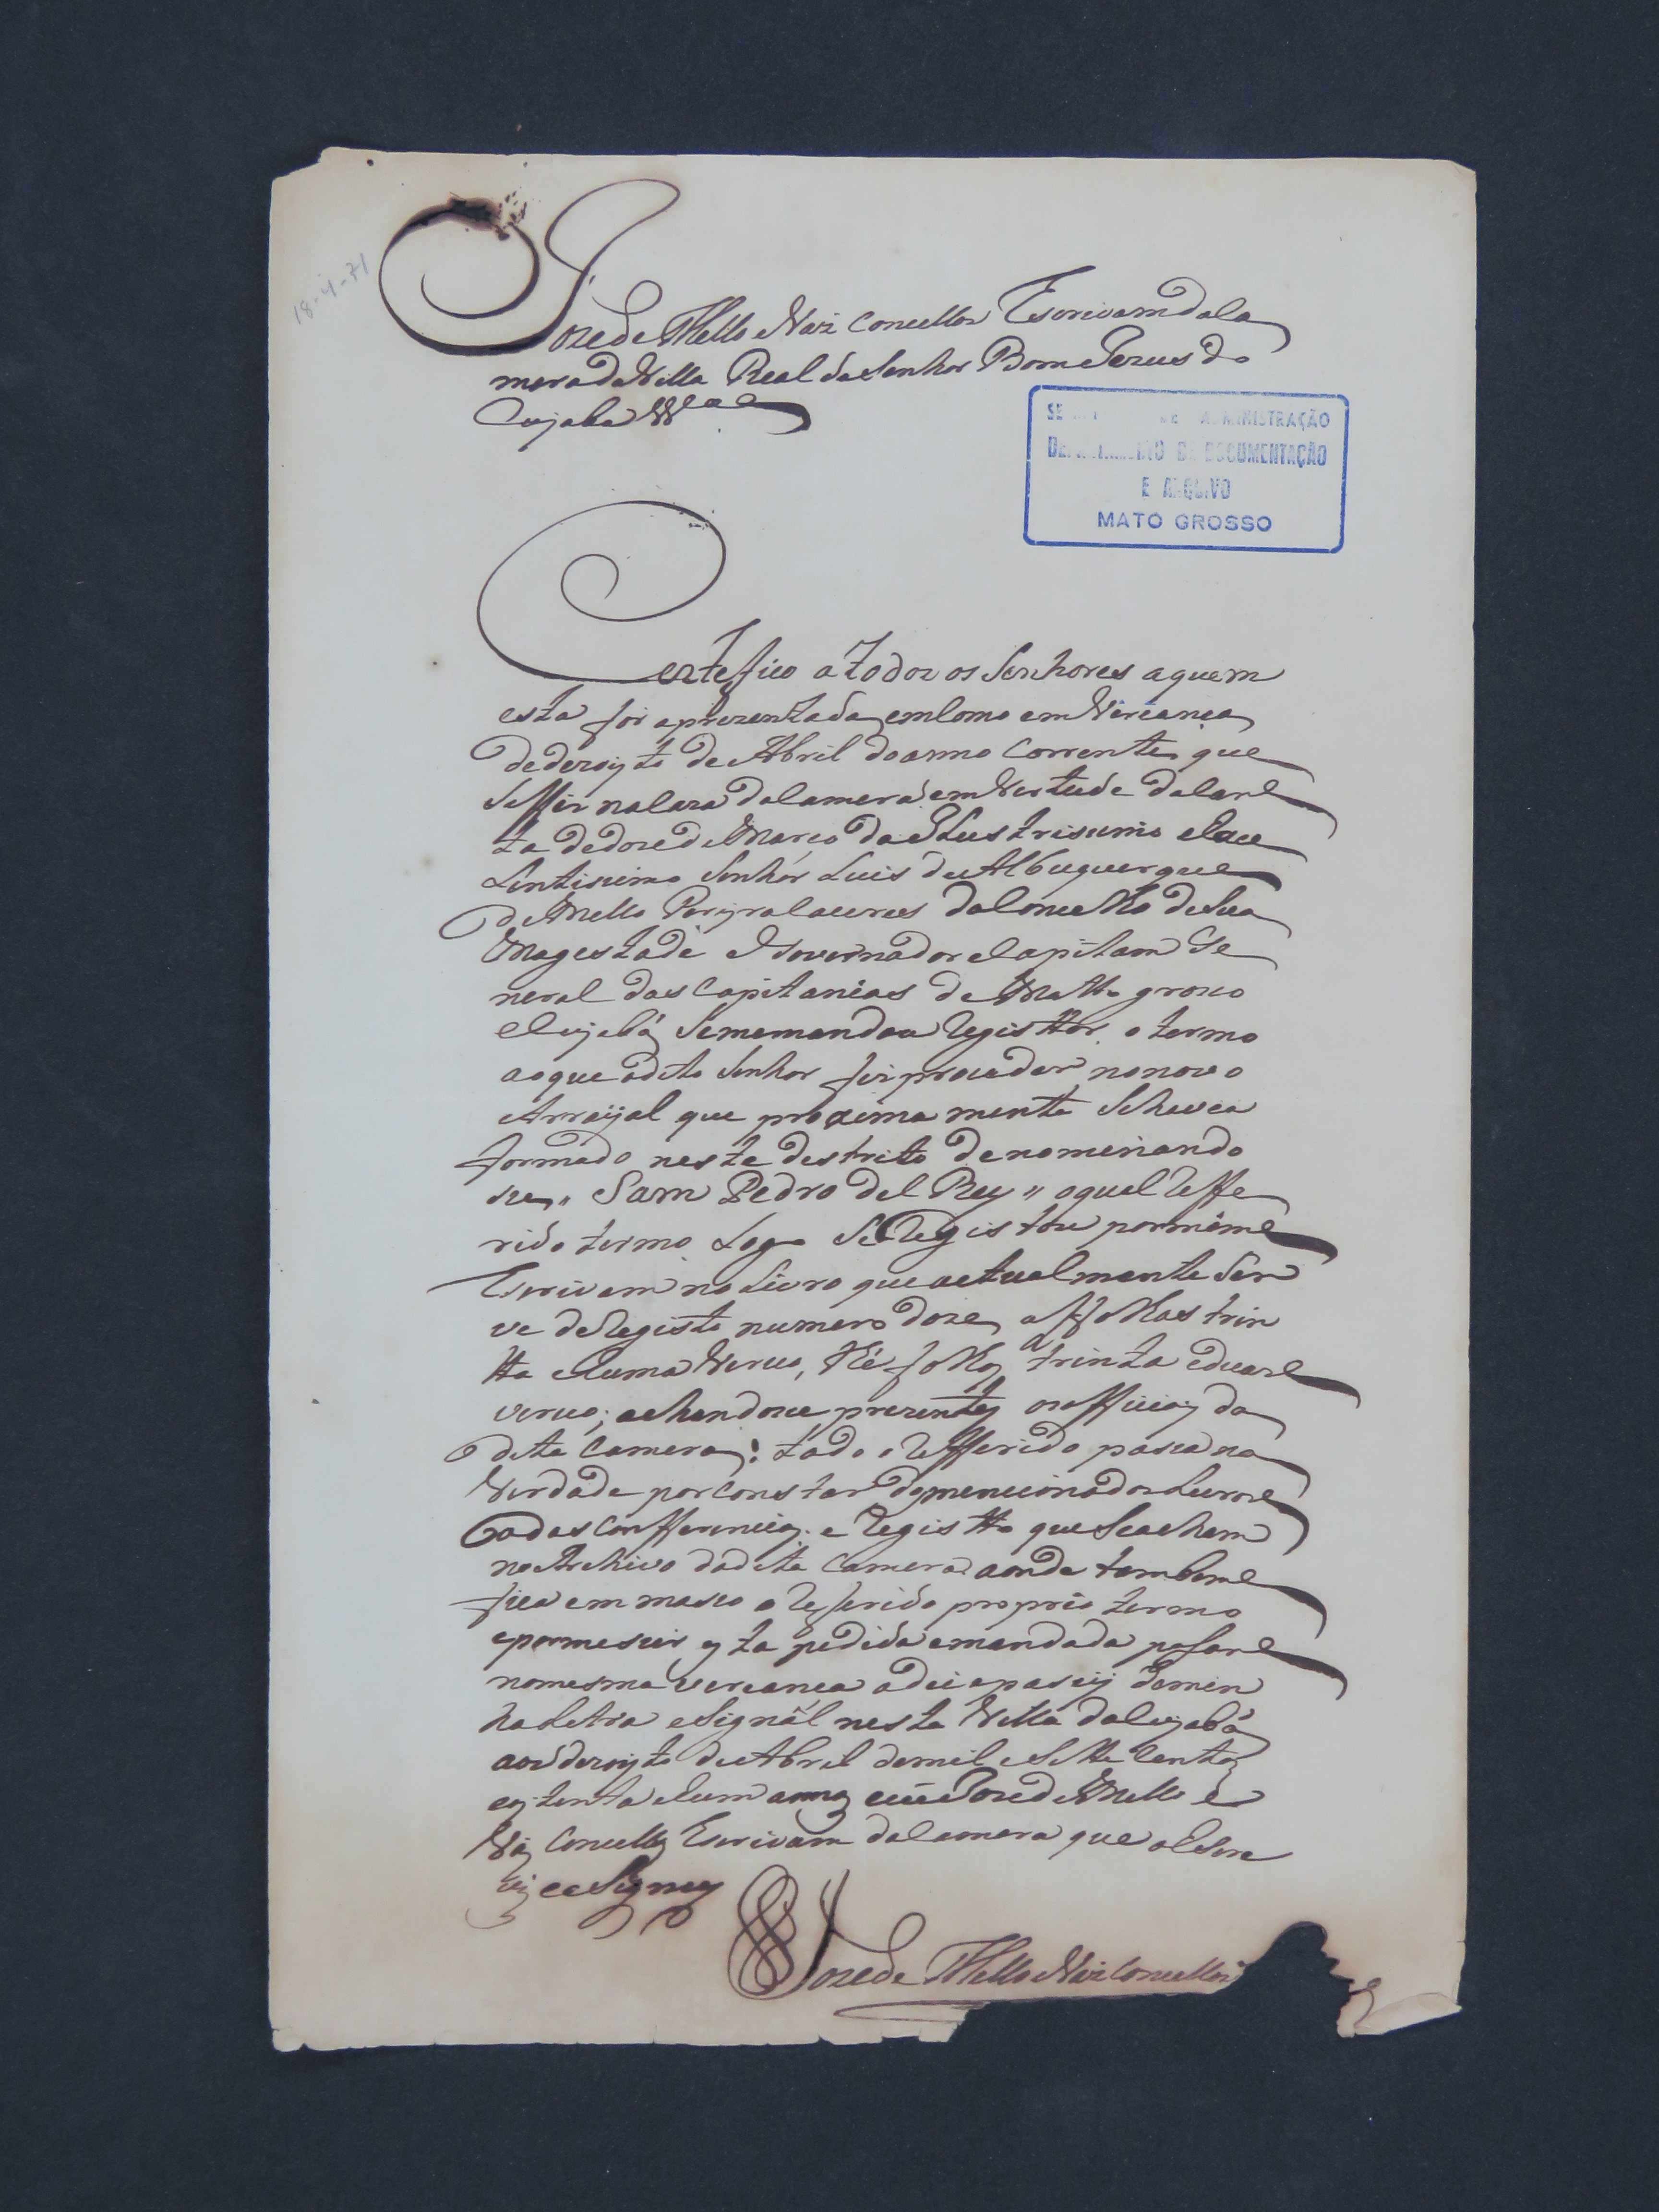 18-4-71
Joze de Mello e Vaz Concellos Escrivam da Ca
mera da Villa Real do Senhor Bom Jezus do
Cujaba
DE ADMINISTRAÇÃO
DE DOCUMENTAÇÃO
E ARQUIVO
MATO GROSSO
Certefico a todos os Senhores aquem
esta for aprezentada, em como em Vereança
de dezoyto de Abril do anno Corrente, que
se fez na Caza da Camera em Vertude da Car
ta de doze de Março do Illustrisimo e Exce
Lentisimo Senhor Luis de Albuquerque
de Mello Pereyra Caceres do Concelho de Sua
Magestade e Governador e Capitam Ge
neral das Capitanias de Matto groso
e Cujabá, se me mandou Registtar o termo
aoque o dito Senhor fez proceder no novo
Arrayal que proxima mente Se havia
formado neste destrito denominando
se,, Sam Pedro del Rey,, o qual Reffe
rido termo Logo Se Registou por mim
Escrivam no Livro que actualmente Ser
ve de Registo numero doze, a ffolhas trin
tta e huma Verso, thé folhas trinta e duas
verso; achandose prezentes os officiaes da
dita Camera: todo o Refferido pasa na
Verdade por Constar dos mencionados Livros
das Confferencias e Registto que Se acham
no Archivo da dita Camera aonde tambem
fica em maso o Referido proprio termo
e por me ser esta pedida e mandada pasar
na mesma vereança a dei e pasey de min
ha Letra e Signál nesta Villa do Cujabá
aos dezoyto de Abril de mil e Sette Centos
e oytenta e hum annos eu Joze de Mello e
Vaz Concellos Escrivam da Camera que o Escre
vi e aSigney
Joze de Mello e Vaz Concellos